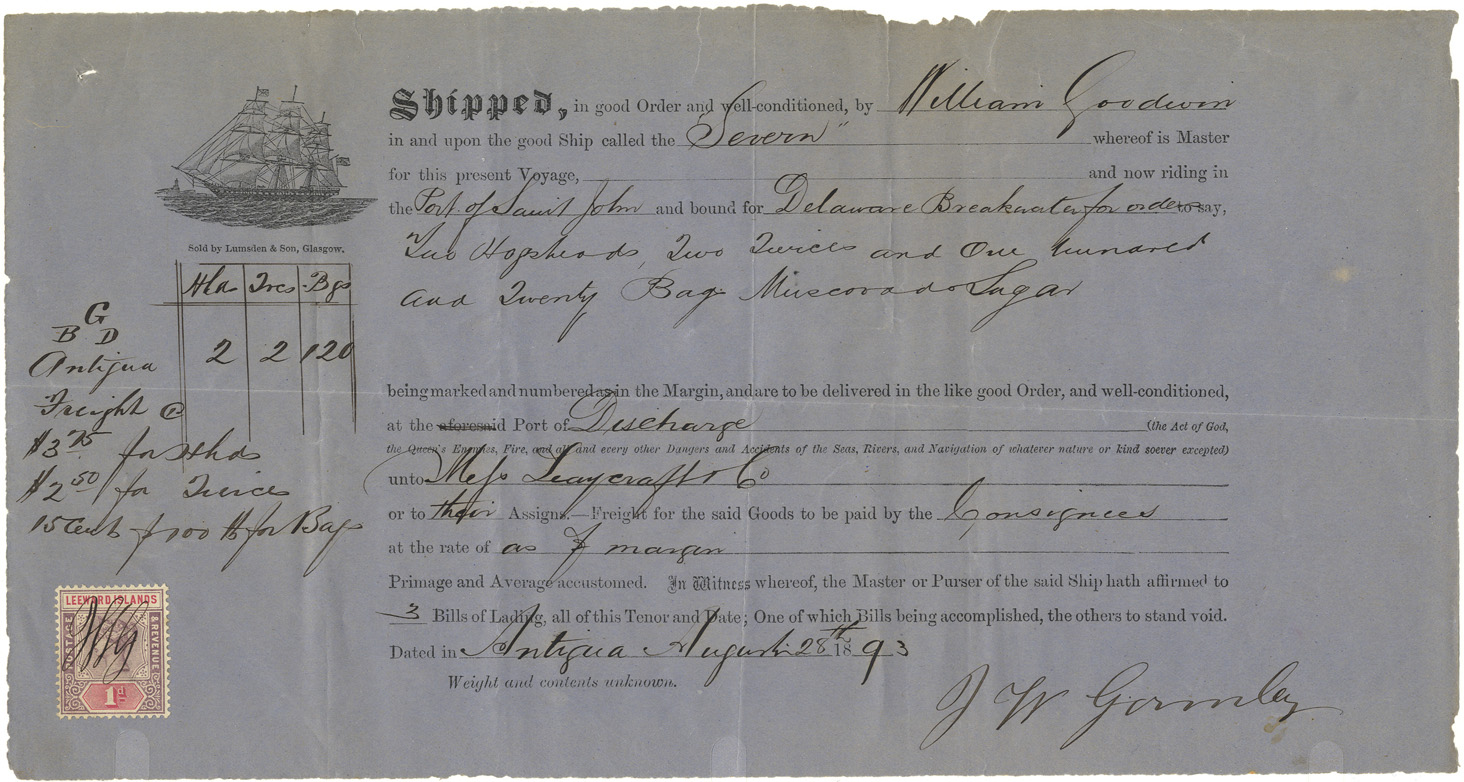 Shipped, in good Order and well-conditioned, by William Goodwin
in and upon the good Ship called the "Severn" whereof is Master
for this present Voyage, and now riding in
the Port of Saint John and bound for Delaware Breakwater for orders to say,
Two Hogsheads, Two Tierces and One hundred
and Twenty Bags Muscovado Sugar
Sold by Lumsden & Son, Glasgow.
Hhd Trcs Bgs
G
B D
Antigua 2 2 120
Freight @
$3.75 for Hhds
$2.50 for Tierces
15 Cents for Bags
being marked and numbered as in the Margin, and are to be delivered in the like good Order, and well-conditioned,
at the aforesaid Port of Discharge (the Act of God,
the Queen's Enemies, Fire, and all and every other Dangers and Accidents of the Seas, Rivers, and Navigation of whatever nature or kind soever excepted)
unto Mess Leaycraft & Co
or to their Assigns.—Freight for the said Goods to be paid by the Consignees
at the rate of as margin
Primage and Average accustomed. In Witness whereof, the Master or Purser of the said Ship hath affirmed to
3 Bills of Lading, all of this Tenor and Date; One of which Bills being accomplished, the others to stand void.
Dated in Antigua August 28th 1893
Weight and contents unknown.
J W Gormley
LEEWARD ISLANDS
POSTAGE & REVENUE
1d